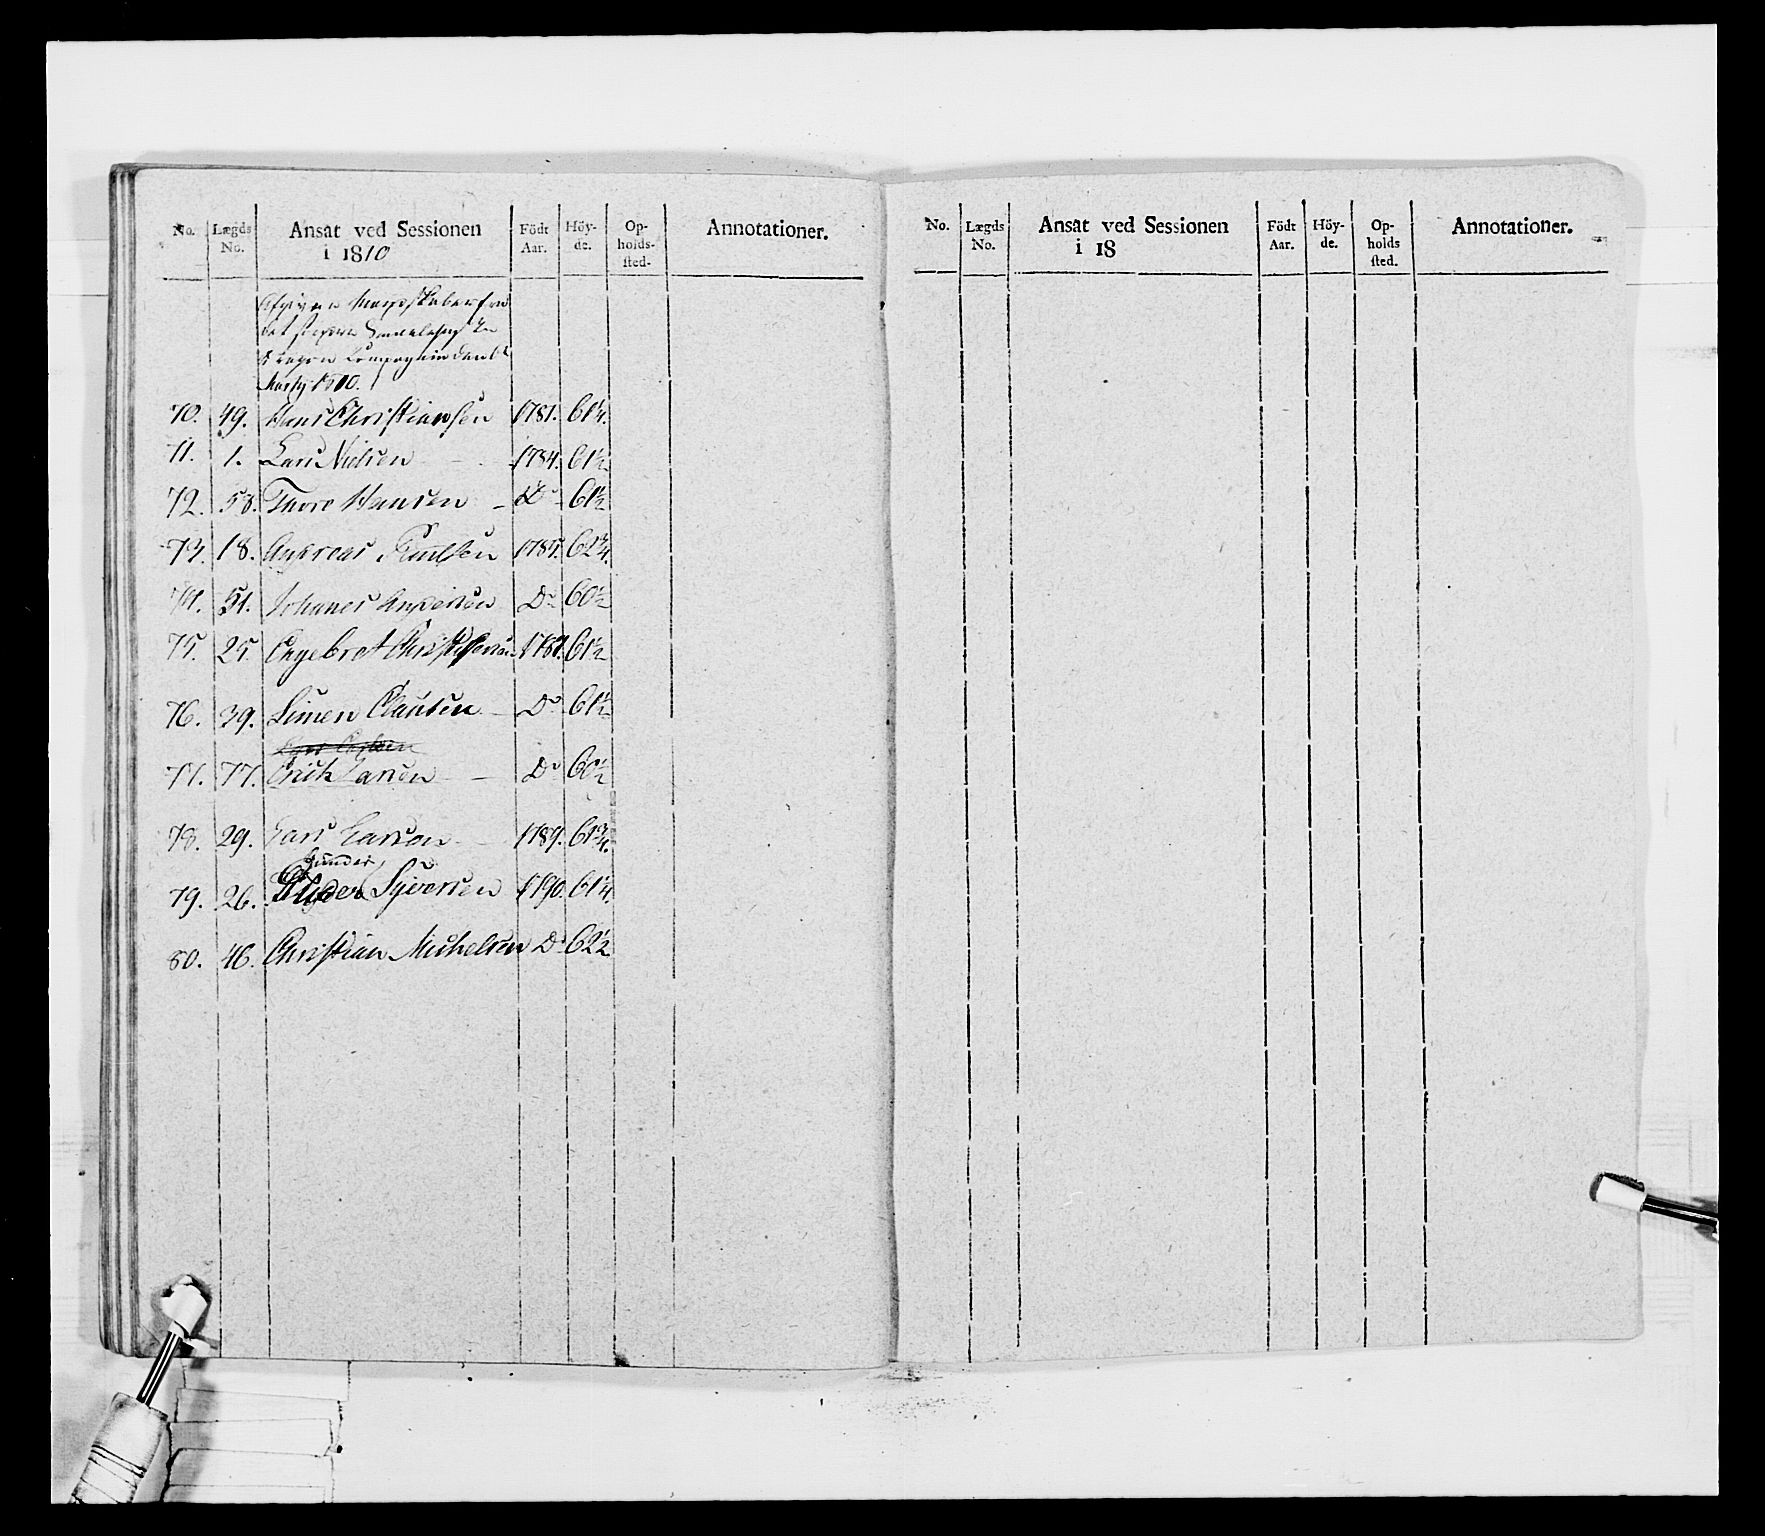 No. Lægds No. Ansat ved Sessionen i 1810 Födt Aar. Höy-de. Op-holds-sted. Annotationer.
Afgiven Mandskaber fra
det
Compagnie den 6te
Martj 1810.
70. 49. Hans Christiansen 1781. 61¼.
71. 1. Lars Nielsen - 1784. 61½
72. 58. Thore Hansen - Do 61½
73. 18. Andreas Knudsen 1785. 62¾.
74. 51. Johanes Andersen Do 60½
75. 25. Engebret Christophersen 1787. 61½
76. 39. Simen Clausen - Do 61½
77. 77. Erich Larsen - Do 60½
78. 29. Lars Larsen - 1789. 61¾.
Gunder
79. 26. Syversen 1790. 61¼.
80. 46. Christian Michelsen Do 62½
No. Lægds No. Ansat ved Sessionen i 18 Födt Aar. Höy-de. Op-holds sted. Annotationer.